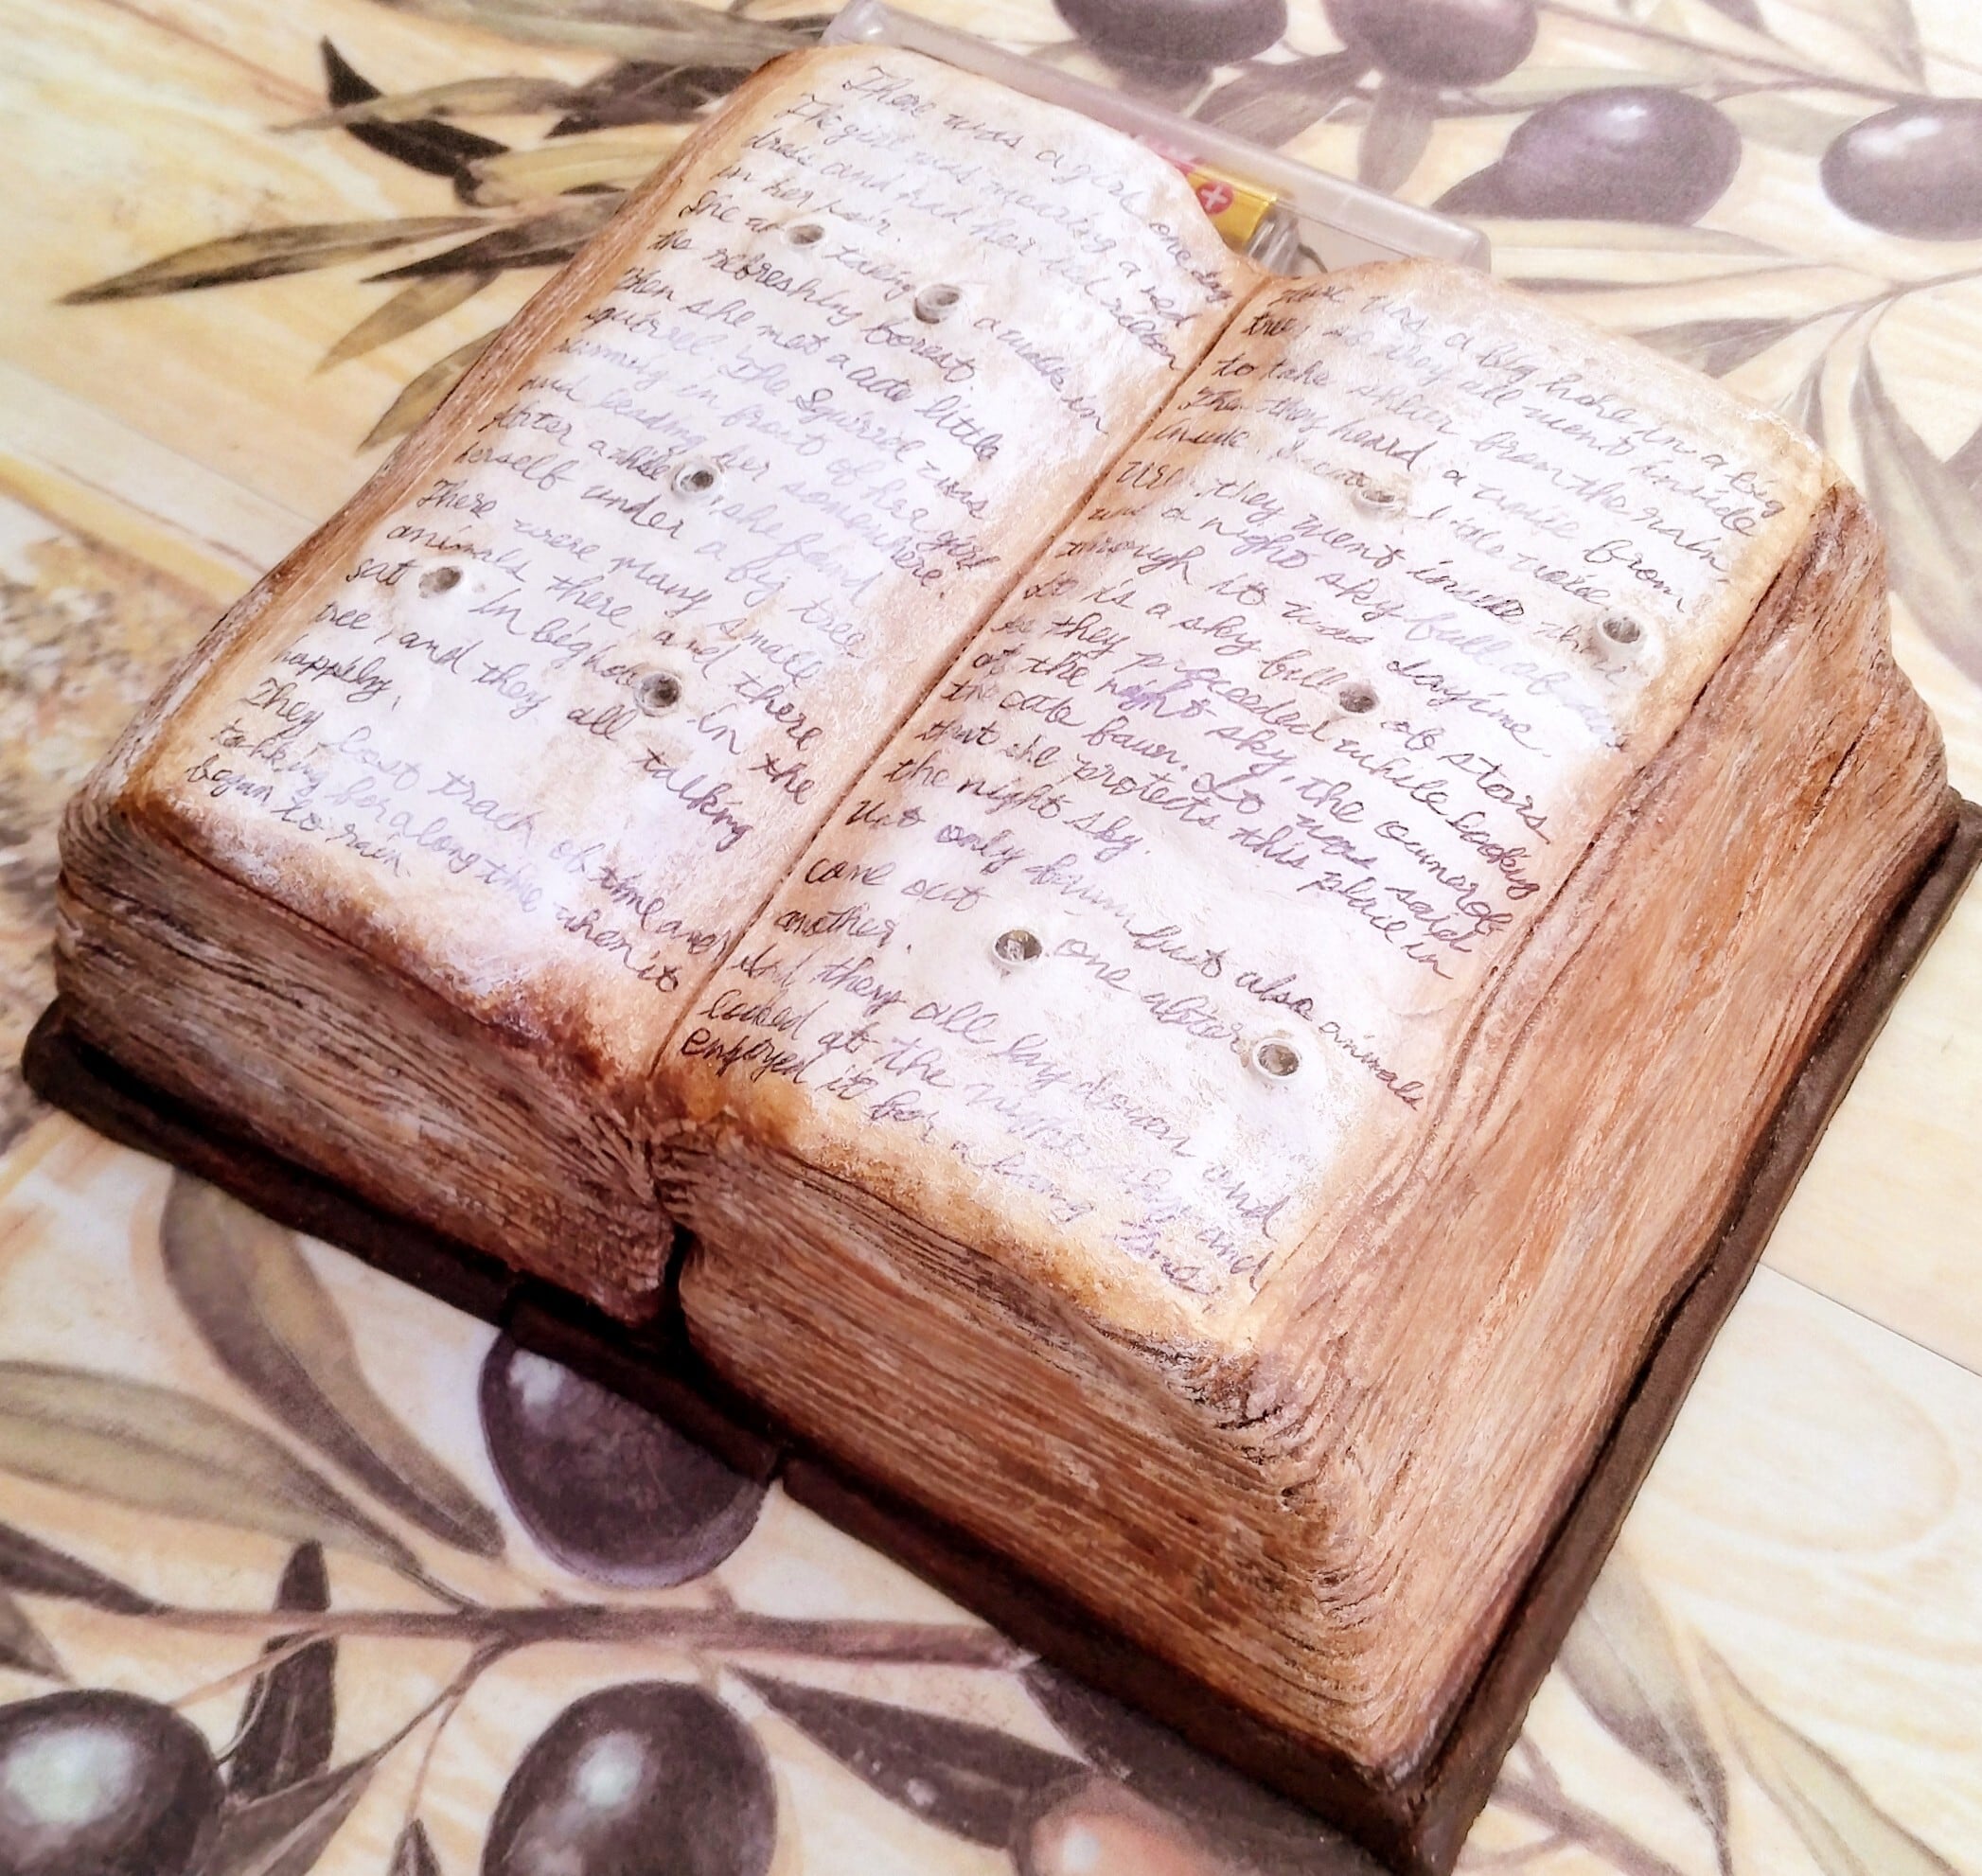 There was a girl one day
The girl was wearing a red
dress and had her red ribbon
in her hair.
She a taking a walk in
the refreshly forest.
When she met a cute little
squirrel. The Squirrel was
running in front of her girl
and leading her somewhere.
After a while, she found
herself under a big tree
There were many small
animals there and there
sat in in the
tree, and they all talking
happily.
They lost track of time and
talking for along time when it
began to rain.
There was a big hole in a big
tree, so they all went inside
to take shelter from the rain.
Then they heard a voice from
inside. voice
they went inside
and a night sky full of
through it was daytime.
It is a sky full of stars
so they proceeded while looking
at the night sky, the owner of
the cute fawn. It was said
that she protects this place in
the night sky.
Not only fawn but also animals
come out one after
another.
And they all lay down and
looked at the night sky and
enjoyed it for a long time.